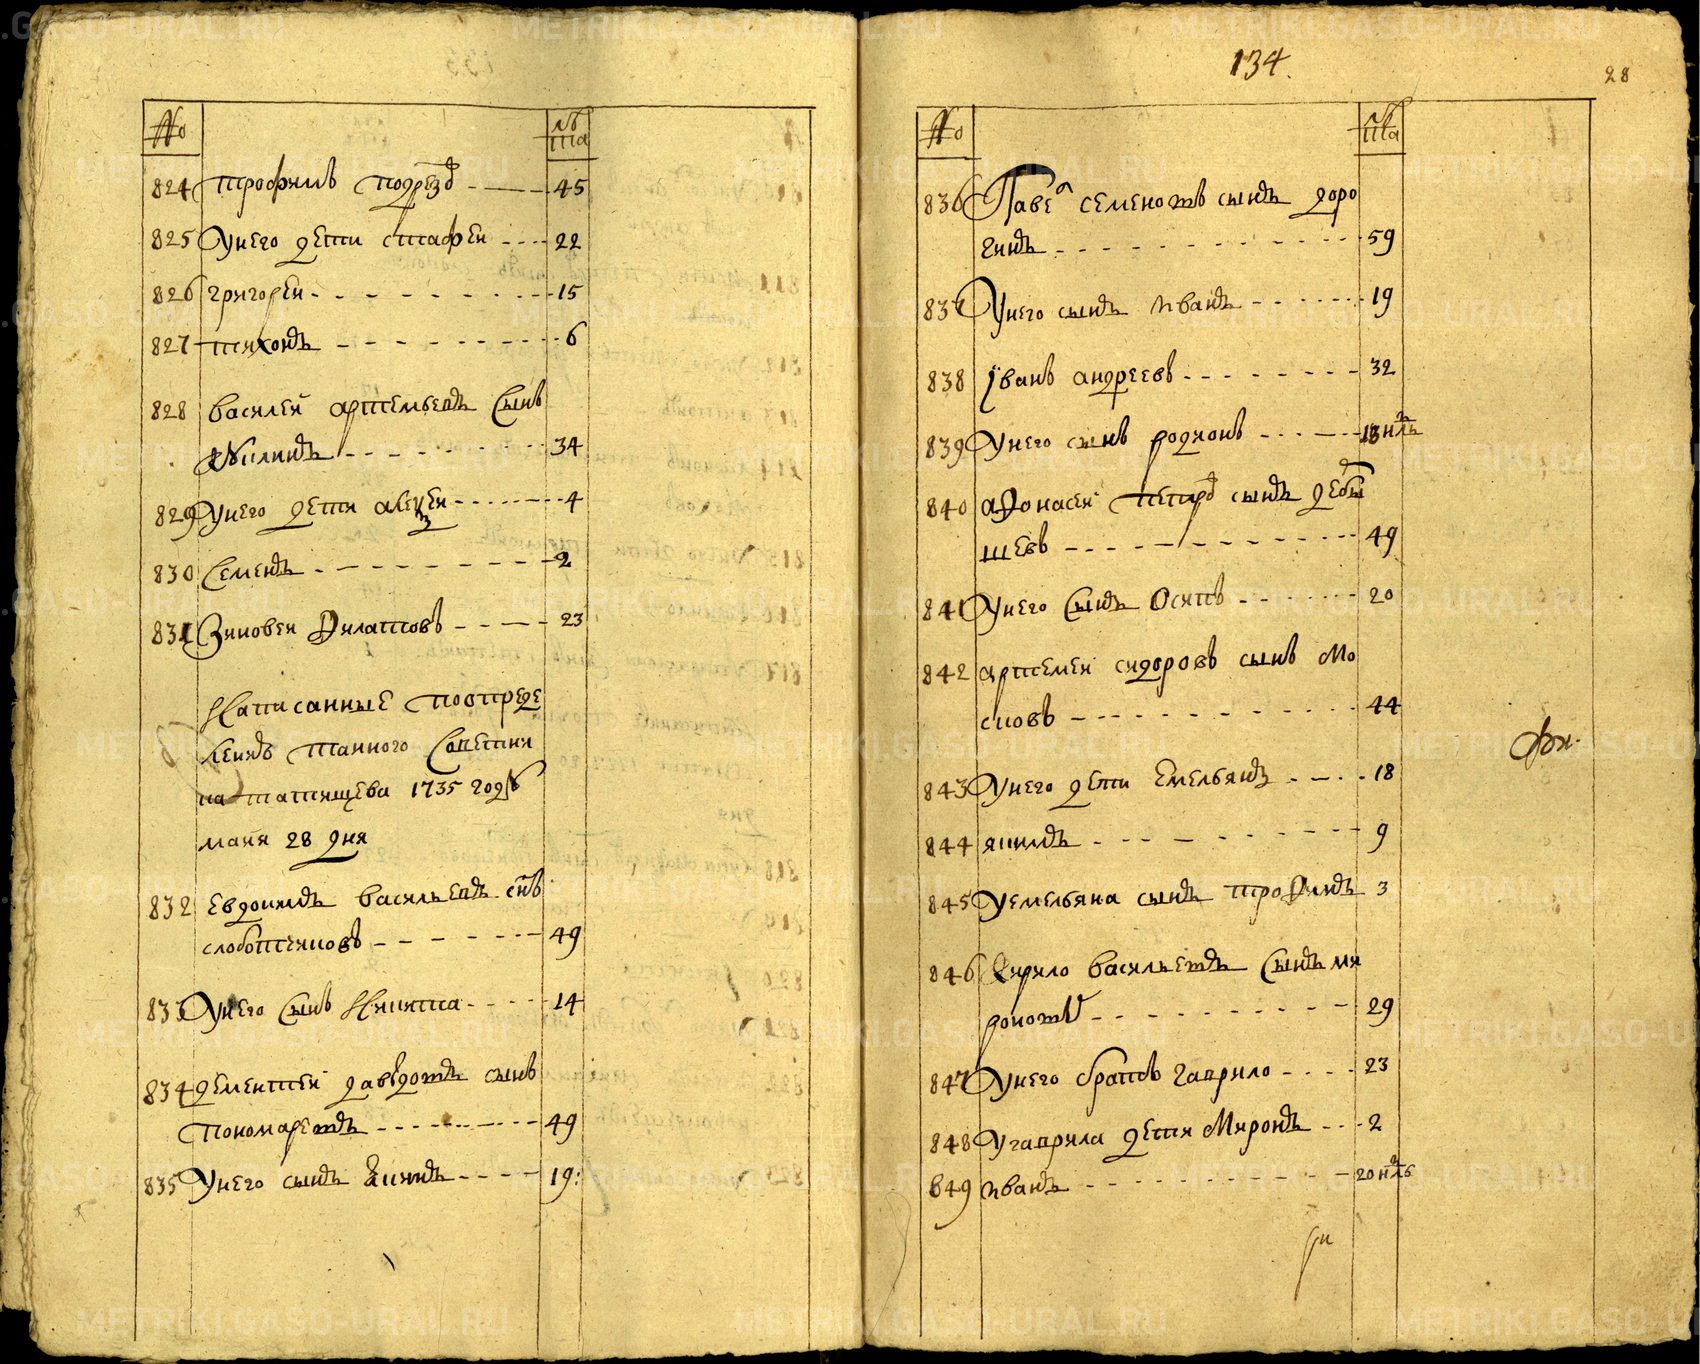 №
лѣта
824 трофимъ подрезо 45
825 Унего дети стафеи 22
826 григореи 15
827 тихонъ 6
828 василеи артемьевъ Сынъ
34
829 Унего дети алеѯеи 4
830 Семенъ 2
831 Зиновеи Филатовъ 23
Написанные поопреде
лению таиного Советни
ка татищева 1735 году
маия 28 дня
832 Евдокимъ васильевъ снъ
слоботчиковъ 49
833 Унего Сынъ Никита 14
834 дементеи давыдовъ сынъ
пономаревъ 49
835 Унего сынъ Якимъ 19:
134.
28
№
лѣта
836 Павелъ семеновъ сынъ доро
гинъ 59
837 Унего сынъ иванъ 19
838 Iванъ андреевъ 32
839 Унего сынъ родионъ
840 афонасеи петровъ сынъ
шевъ 49
841 Унего Сынъ Осипъ 20
842 артемеи сидоровъ сынъ Мо
сковъ 44
843 Унего дети Емельянъ 18
844 якимъ 9
845 Уемельяна сынъ трофимъ 3
846 Кирило васильевъ Сынъ ми
роновъ 29
847 Унего братъ гаврило 23
848 Угаврила дети Миронъ 2
849 иванъ 20 нлъ
METRIKI.GASO-URAL.RU